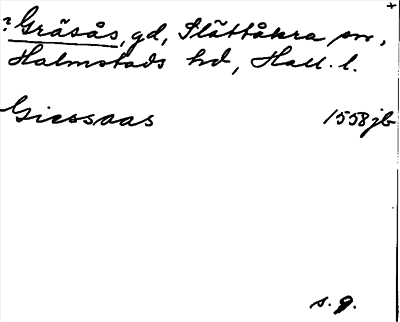 ? Gräsås, gd, Slättåkra sn,
Halmstads hd, Hall. l.
Giessaas 1558 jb
s. g.